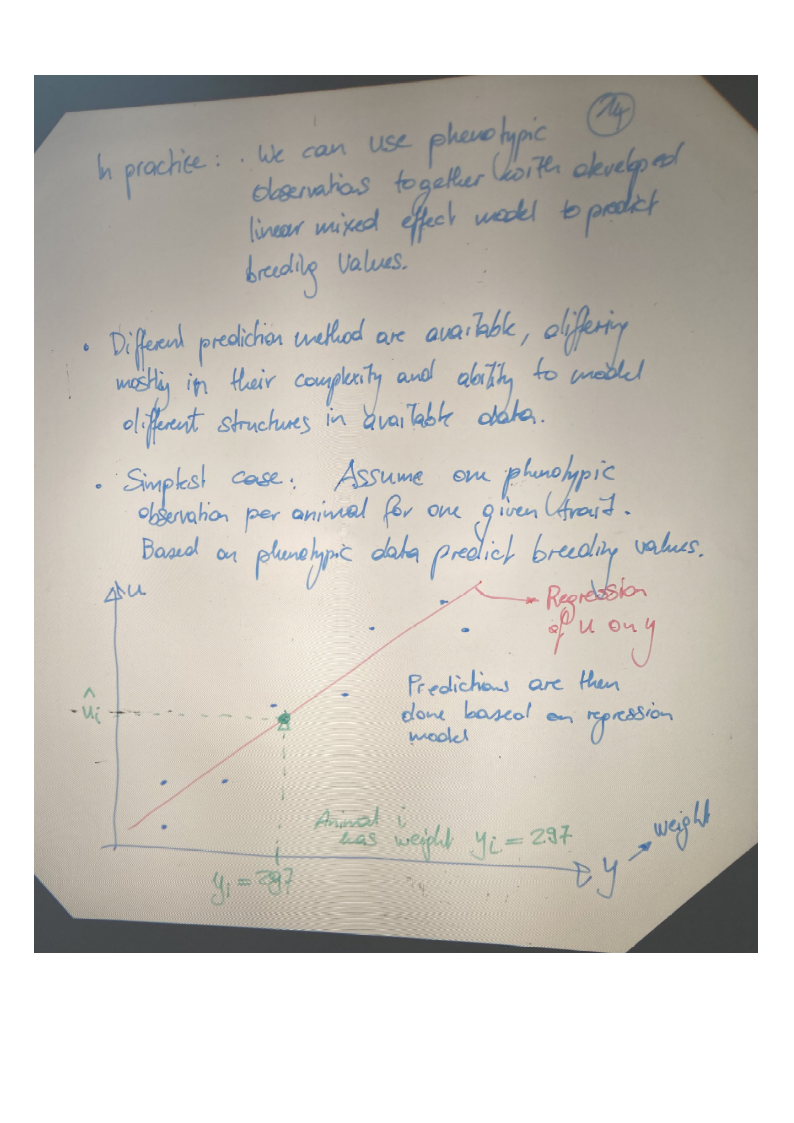 14
In practice: . We can use phenotypic
observations together with developed
linear mixed effect model to predict
breeding values.
• Different prediction method are available, differing
mostly in their complexity and ability to model
different structures in available data.
• Simplest case: Assume one phenotypic
observation per animal for one given trait.
Based on phenotypic data predict breeding values.
u
Regression
of u on y
Predictions are then
done based on regression
model
ûi
Animal i
has weight yi = 297
weight
y
yi = 297